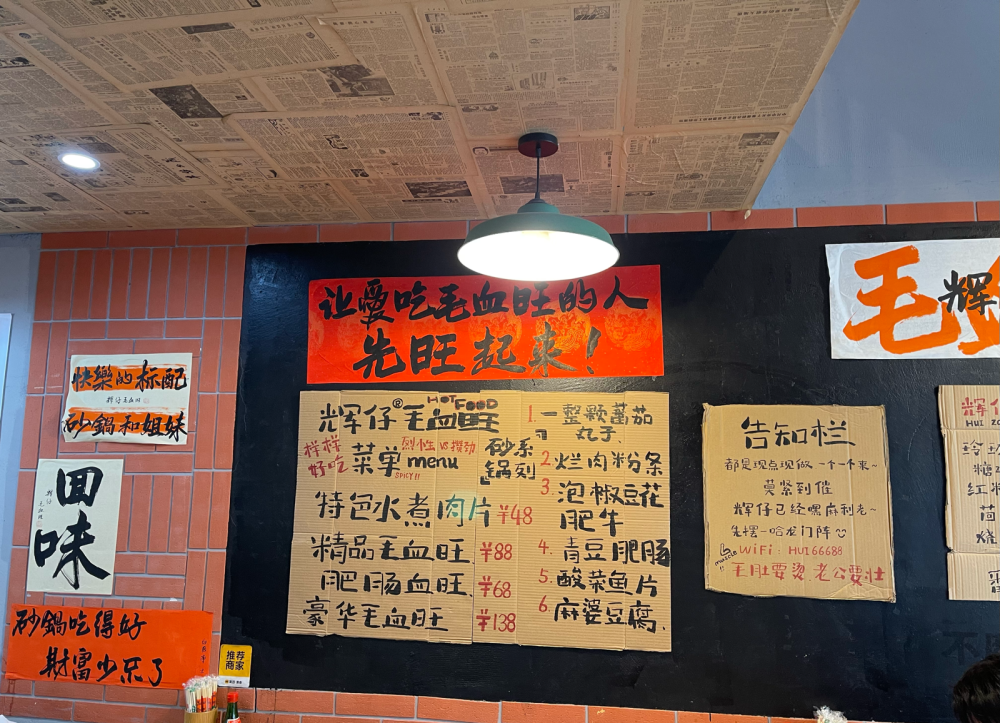 让愛吃毛血旺的人
先旺起来！
快樂的标配
砂鍋和姐妹
回味
砂鍋吃得好
財富少不了
推荐
商家
辉仔®毛血旺
HOT FOOD
样样
好吃
菜单
menu
烈性 VS 攒劲
SPICY!!
砂系
锅列
特色水煮肉片 ¥48
精品毛血旺 ¥88
肥肠血旺 ¥68
豪华毛血旺 ¥138
1. 一整颗蕃茄
丸子
2. 烂肉粉条
3. 泡椒豆花
肥牛
4. 青豆肥肠
5. 酸菜鱼片
6. 麻婆豆腐
告知栏
都是现点现做 一个一个来~
莫紧到催
辉仔已经嘿麻利老~
先摆一哈龙门阵
WiFi: HUI66688
毛肚要烫 老公要壮
毛
辉
辉
糖
红
烧